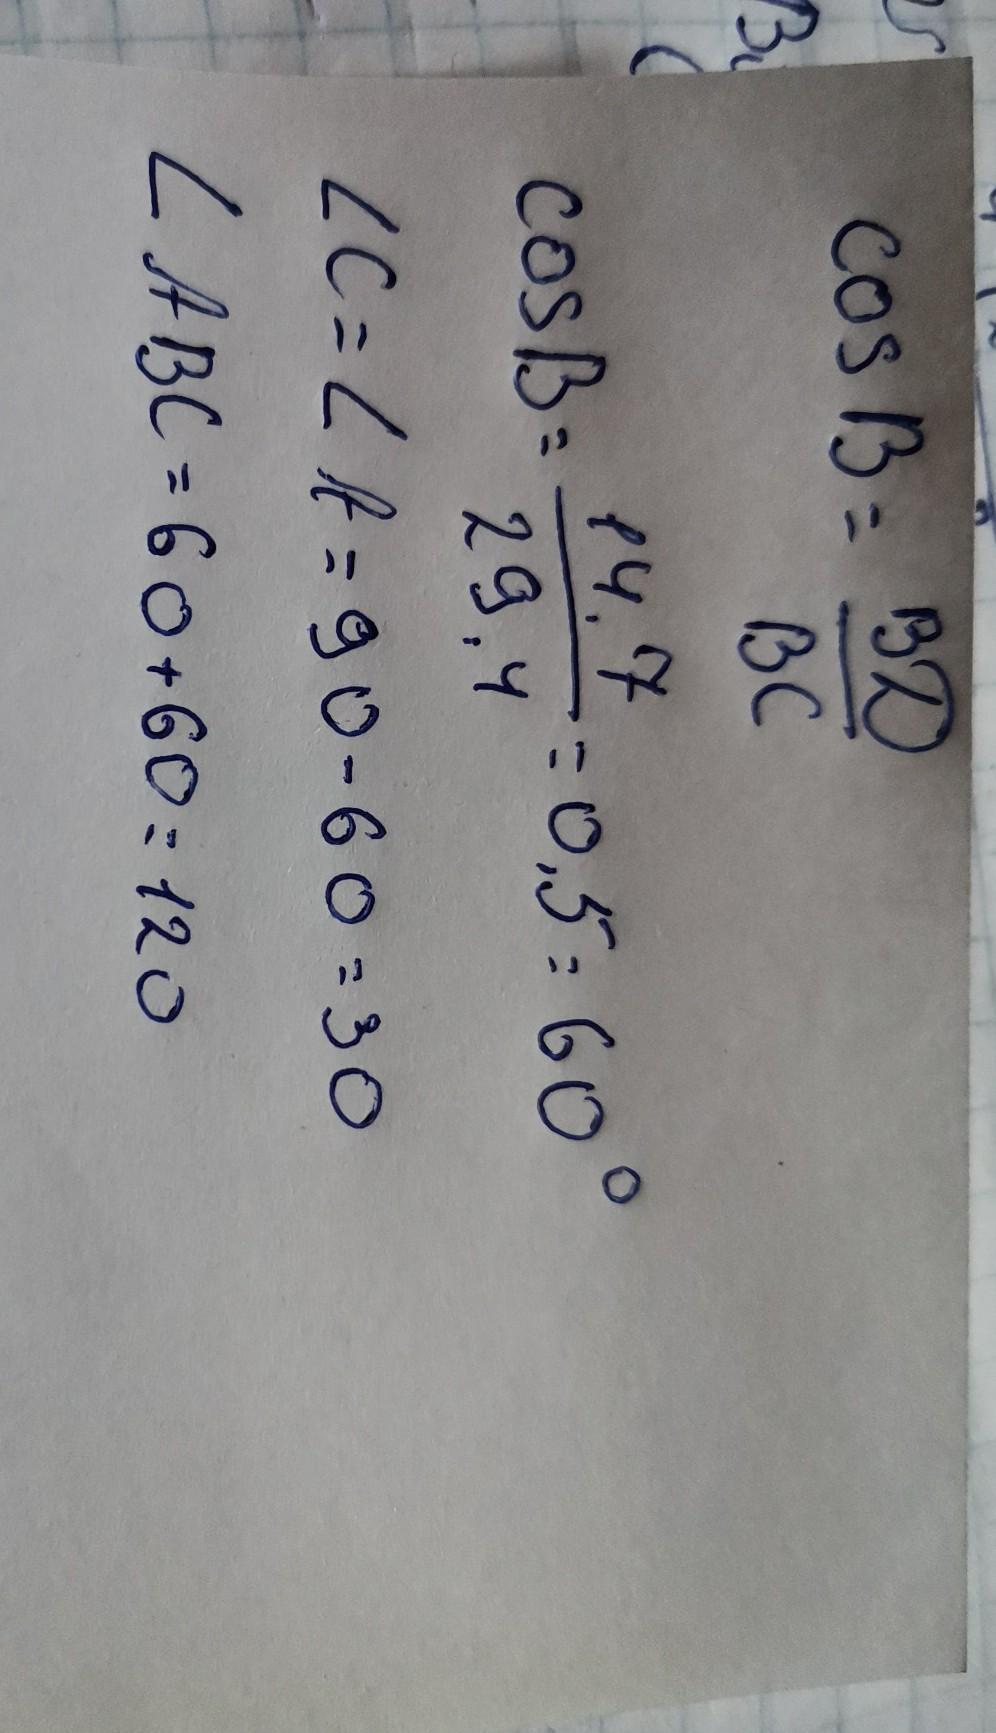 cos B = BD / BC
cos B = 14.7 / 29.4 = 0,5 = 60°
∠C = ∠A = 90 - 60 = 30
∠ABC = 60 + 60 = 120